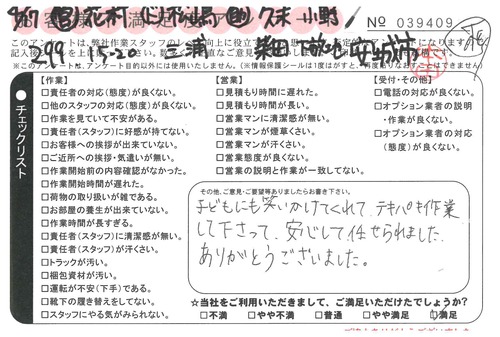 No 039409
このアンケートは、弊社作業スタッフの
※このアンケートは、アンケート目的以外には使用いたしません。(※情報保護シールは1度はがすと、再度貼りなおすことはできません)
チェックリスト
【作業】
□責任者の対応(態度)が良くない。
□他のスタッフの対応(態度)が良くない。
□作業を見ていて不安がある。
□責任者(スタッフ)に好感が持てない。
□お客様への挨拶が出来ていない。
□ご近所への挨拶・気遣いが無い。
□作業開始前の内容確認がなかった。
□作業開始時間が遅れた。
□荷物の取り扱いが雑である。
□お部屋の養生が出来ていない。
□作業時間が長すぎる。
□責任者(スタッフ)に清潔感が無い。
□責任者(スタッフ)が汗くさい。
□トラックが汚い。
□梱包資材が汚い。
□運転が不安(下手)である。
□靴下の履き替えをしてない。
□スタッフにやる気がみられない。
【営業】
□見積もり時間に遅れた。
□見積もり時間が長い。
□営業マンに清潔感が無い。
□営業マンが煙草くさい。
□営業マンが汗くさい。
□営業態度が良くない。
□営業の説明と作業が一致してない。
【受付・その他】
□電話の対応が良くない。
□オプション業者の説明
・作業が良くない。
□オプション業者の対応
(態度)が良くない。
その他、ご意見・ご要望等ありましたらお書き下さい。
子どもにも笑いかけてくれて、テキパキ作業
して下さって、安心して任せられました。
ありがとうございました。
☆当社をご利用いただきまして、ご満足いただけたでしょうか?
□不満 □やや不満 □普通 □やや満足 □満足